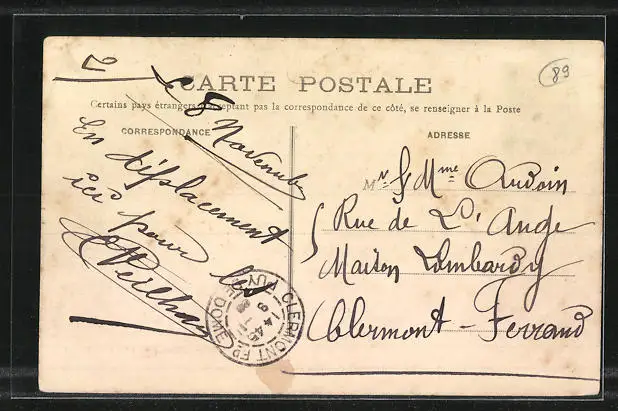 2
89
CARTE POSTALE
Certains pays étrangers n'acceptant pas la correspondance de ce côté, se renseigner à la Poste
CORRESPONDANCE
ADRESSE
Le 8 Novembre
En déplacement
ici pour les
M
Mr & Mme Audoin
Rue de L'Ange
Maison Lombardy
Clermont-Ferrand
CLERMONT-FD
PUY DE DOME
14 45